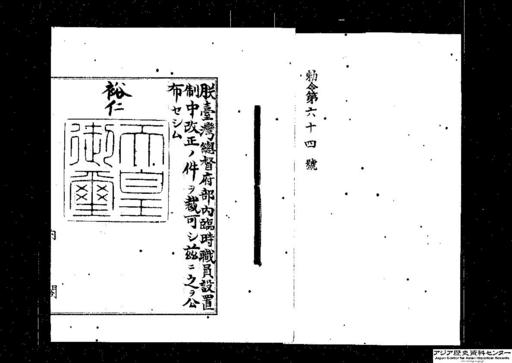 勅令第六十四號
朕臺灣總督府部內臨時職員設置
制中改正ノ件ヲ裁可シ茲ニ之ヲ公
布セシム
裕仁
天皇
御璽
內
閣
アジア歴史資料センター
Japan Center for Asian Historical Records